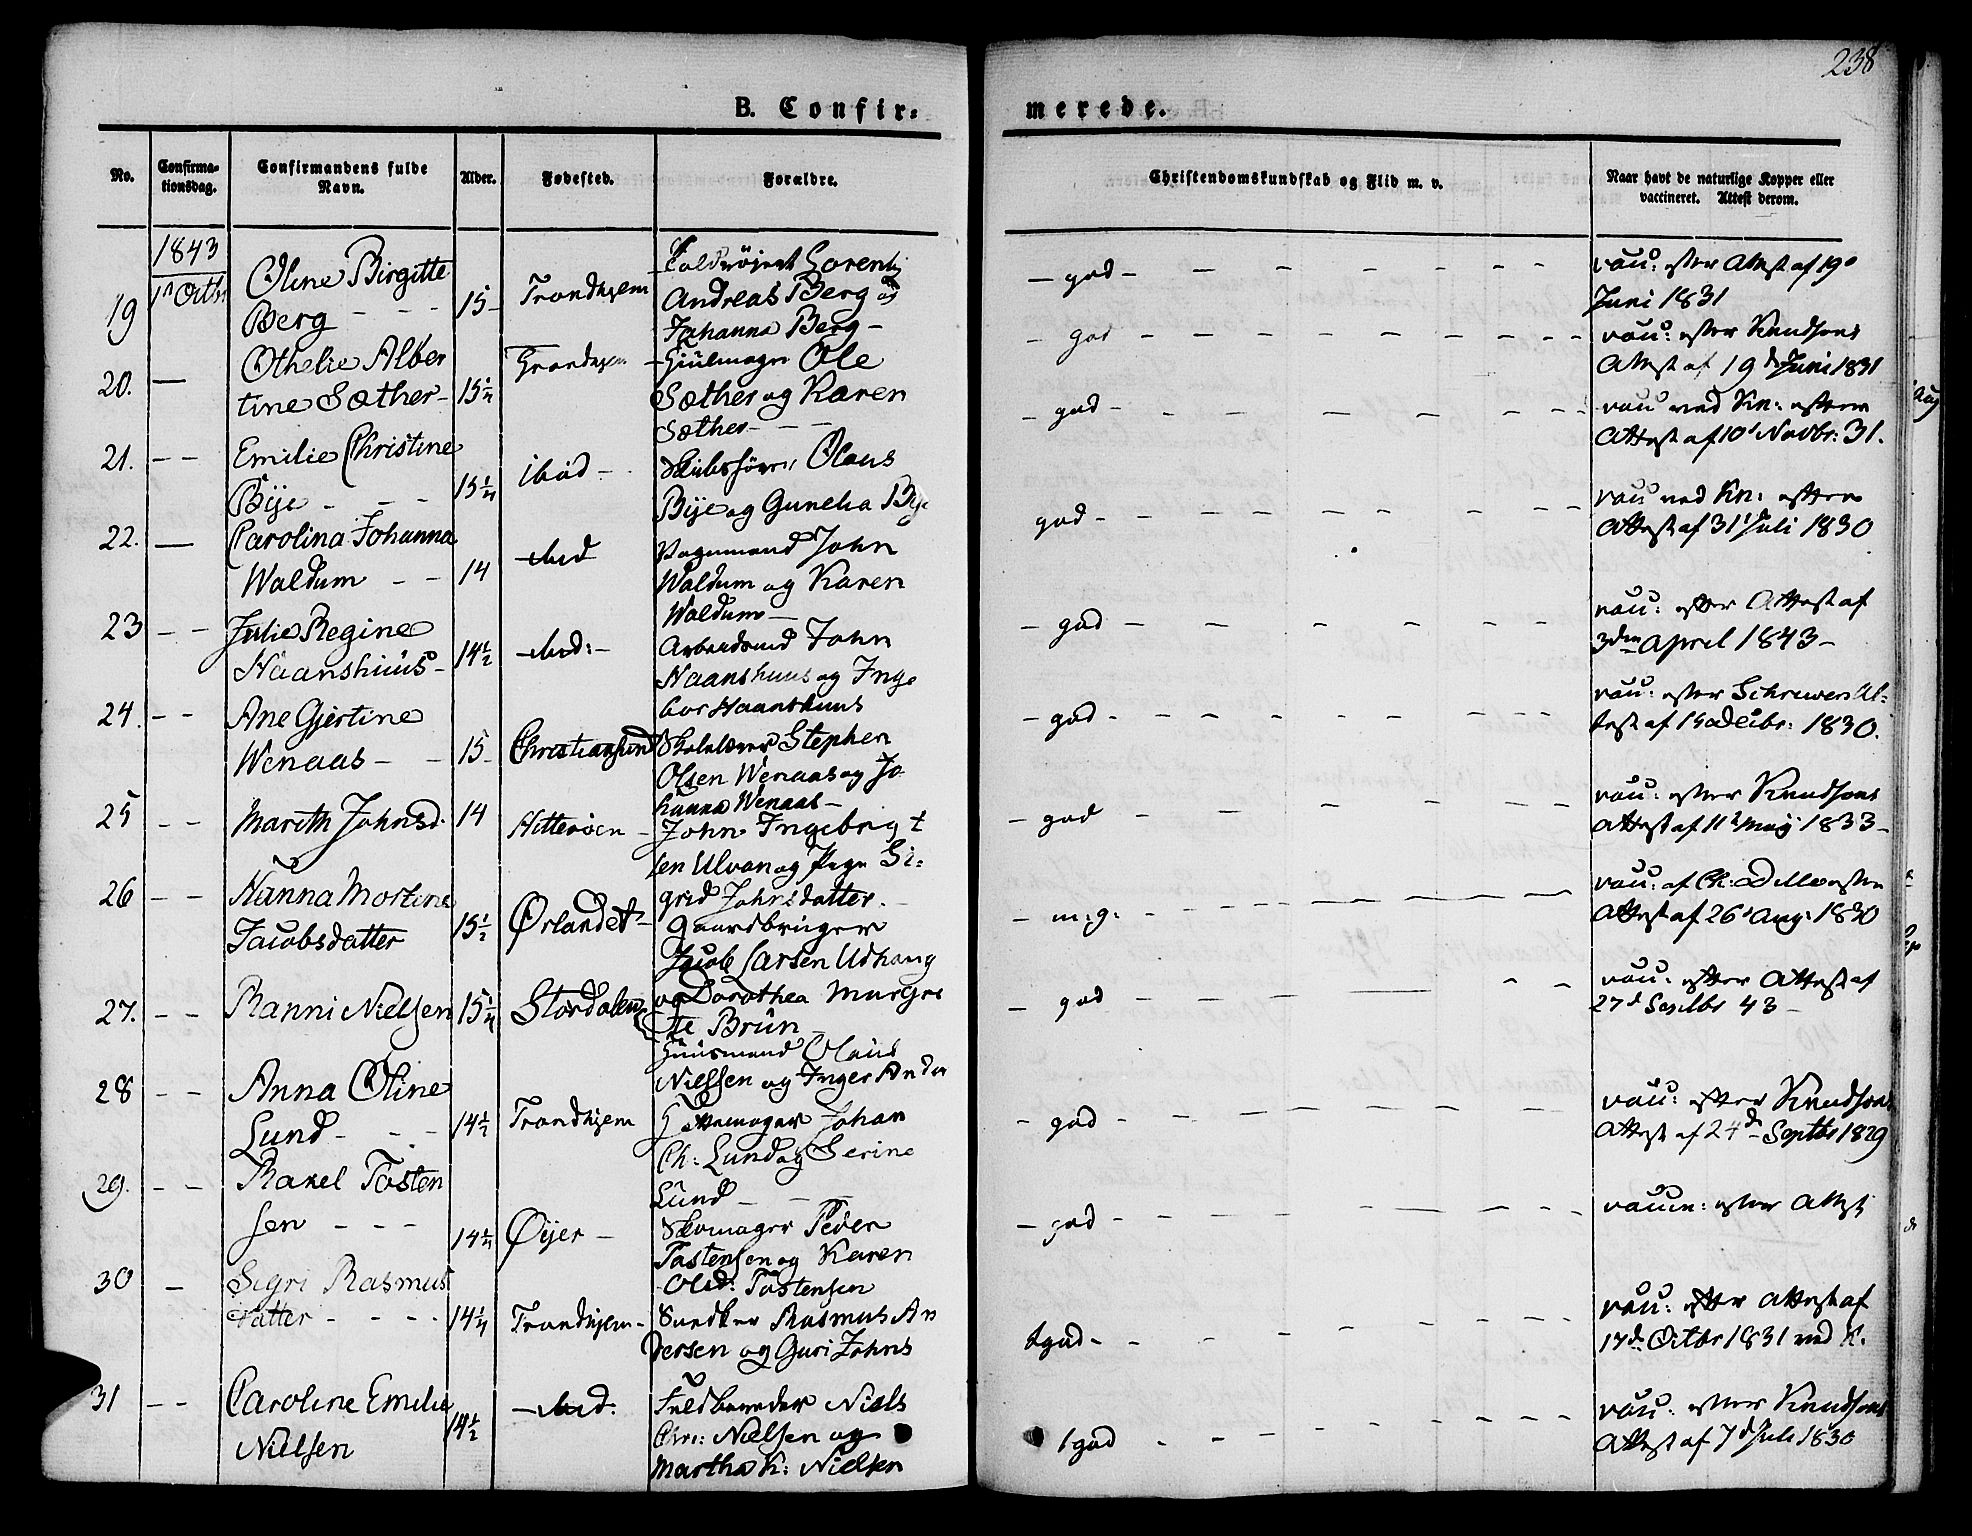 238
B. Confirmerede.
No.
Confirmationsdag.
Confirmandens fulde Navn.
Alder.
Fødested.
Forældre.
Christendomskundskab og Flid m. v.
Naar havt de naturlige Kopper eller vaccineret. Attest derom.
1843
19
Oline Birgitte
Berg - - -
15
Trondhjem
Lorentz
Andreas Berg og
Johanna Berg -
- god -
vacc: efter Attest af 19
Juni 1831
20. —
Othelie Alber
tine Sæther -
15 1/4
Trondhjem
Ole
Sæther og Karen
Sæther - - -
- god
vacc: efter Knudsons
Attest af 19d Juni 1831
21. - -
Emilie Christine
Bye - - -
15 1/4
ibid -
Olaus
Bye og Gunelia Bye
- god -
vacc ved Kn: efter
Attest af 10d Novbr: 31.
22. —
Carolina Johanna
Waldum - -
14
ibid
Vognmand John
Waldum og Karen
Waldum -
god -
vacc ved Kn: efter
Attest af 31 Juli 1830
23 - -
Julie Regine
Haanshuus -
14 1/2
- ibid: -
Arbeidsmd John
Haanshuus og Inge
bor Haanshuus
- god -
vacc: efter Attest af
3den April 1843 -
24. - -
Ane Gjertine
Wenaas - -
15
Christiansund
Skolelærer Stephen
Olsen Wenaas og Jo
hanna Wenaas -
- god -
vacc: efter At-
test af 1830.
25 - -
Mareth Johnsd.
14
Hitterøen -
John Ingebrigt
sen Ulvan og Pige Si-
grid Johnsdatter.
- god -
vacc: efter Knudsons
Attest af 11 May 1833 -
26 - -
Hanna Mortine
Jacobsdatter
15 1/2
Ørlandet -
Gaardbruger
Jacob Larsen Udhaug
og Dorothea Margre
te Brün -
- m: g: -
vacc: af Ch: efter
Attest af 26d Aug: 1830
27. - -
Ranni Nielsen
15 1/4
Stordalen
Huusmand Olaus
Nielsen og Inger Ander
- god -
vacc: efter Attest af
27d Septbr 43 -
28 - -
Anna Oline
Lund - - -
14 1/2
Trondhjem
Johan
Ch: Lund og Serine
Lund - - -
- god -
vacc: efter Knudsons
Attest af 24d Septbr 1829
29. - -
Rakel Tosten
sen - - -
14 1/4
Øijer -
Skomager Peder
Tostensen og Karen
Olsd: Tostensen
- god -
vaccin: efter Attest
30 -
Sigri Rasmus
datter - - -
14 1/4
Trondhjem -
Rasmus An
dersen og Guri Johns
tgod -
vacc: efter Attest af
17d Octbr 1831 ved K.
31 - -
Caroline Emilie
Nielsen
14 1/2
- ibid:
Feldbereder Niels
Chr: Nielsen og
Martha K: Nielsen
tgod -
vacc: efter Knudsons
Attest af 7d Juli 1830